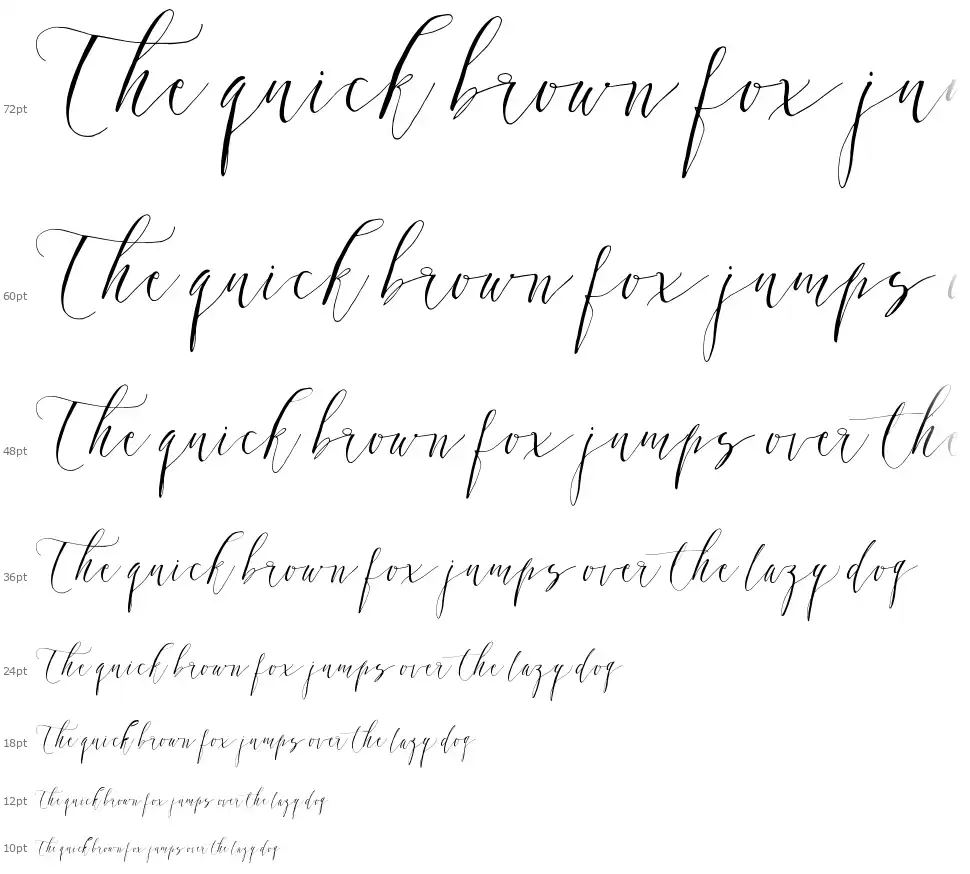 72pt The quick brown fox ju
60pt The quick brown fox jumps
48pt The quick brown fox jumps over the
36pt The quick brown fox jumps over the lazy dog
24pt The quick brown fox jumps over the lazy dog
18pt The quick brown fox jumps over the lazy dog
12pt The quick brown fox jumps over the lazy dog
10pt The quick brown fox jumps over the lazy dog